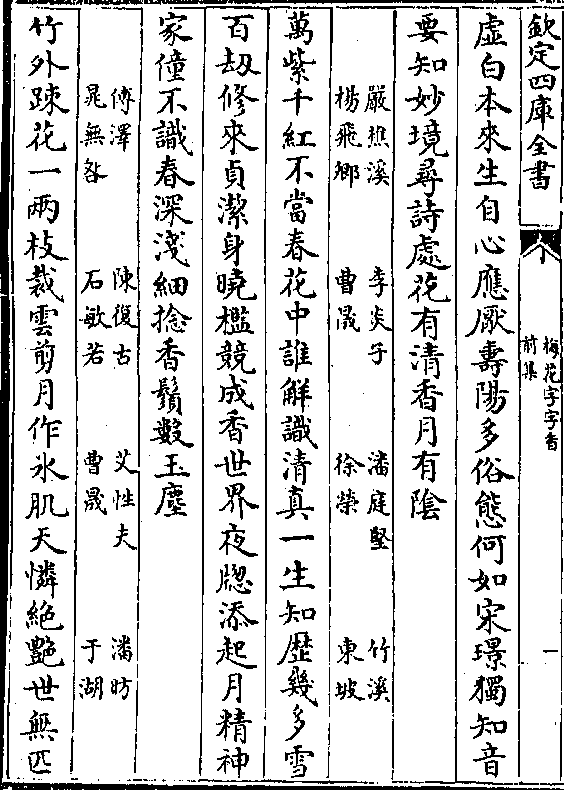 欽定四庫全書
梅花字字香
前集
一
虛白本來生自心應厭壽陽多俗態何如宋璟獨知音
要知妙境尋詩處花有清香月有陰
嚴樵溪 李炎子 潘庭堅 竹溪
楊飛卿 曹晟 徐榮 東坡
萬紫千紅不當春花中誰解識清真一生知歷幾多雪
百刼修來貞潔身曉檻競成香世界夜牕添起月精神
家僮不識春深淺細捻香鬚數玉塵
傅澤 陳復古 艾性夫 潘昉
晁無咎 石敏若 曹晟 于湖
竹外疎花一兩枝裁雲剪月作氷肌天憐絶艷世無匹